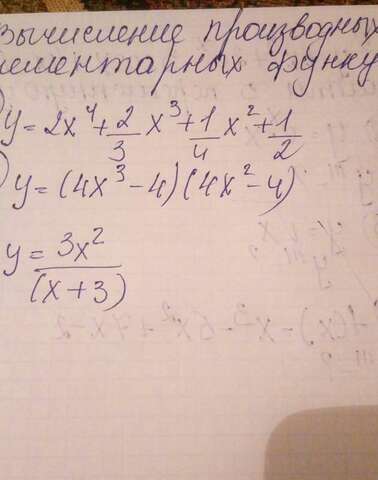 вычисление производных
элементарных функц
y = 2x⁴ + 2/3 x³ + 1/4 x² + 1/2
y = (4x³ - 4)(4x² - 4)
y = 3x²/(x + 3)